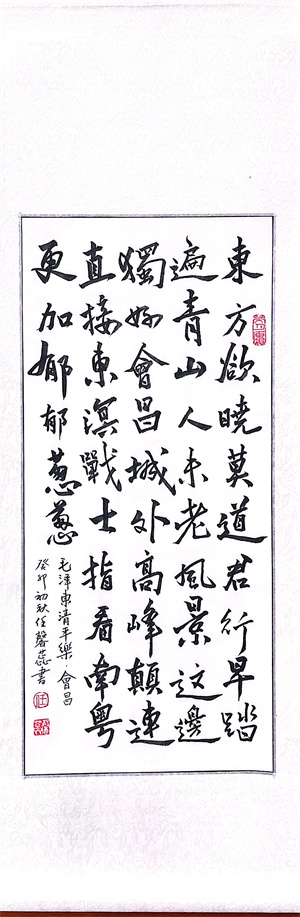 東方欲曉莫道君行早踏
遍青山人未老風景这邊
獨好會昌城外高峰顛連
直接東溟戰士指看南粤
更加郁郁葱葱
毛澤東清平樂 會昌
癸卯初秋任馨蕊書